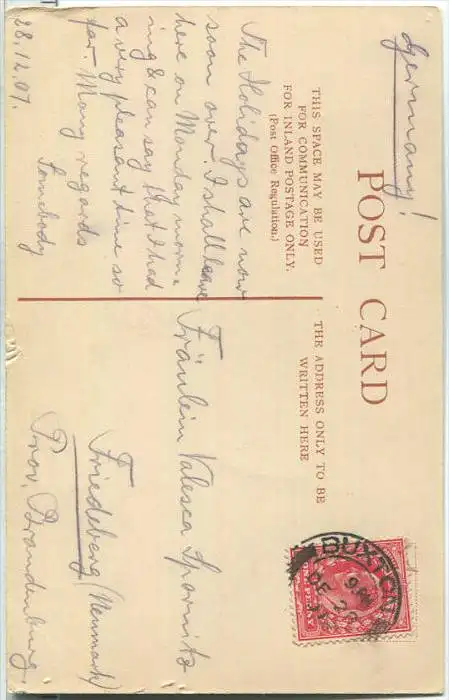 Germany!
POST CARD
THIS SPACE MAY BE USED
FOR COMMUNICATION
FOR INLAND POSTAGE ONLY.
(Post Office Regulation.)
THE ADDRESS ONLY TO BE
WRITTEN HERE
The Holidays are now
soon over. I shall leave
here on Monday morn-
ing & can say that I had
a very pleasant time so
far. Many regards
Somebody
28.12.07.
Fräulein Valesca Spornitz
Friedeberg (Neumark)
Prov. Brandenburg.
BUXTON
DE 28